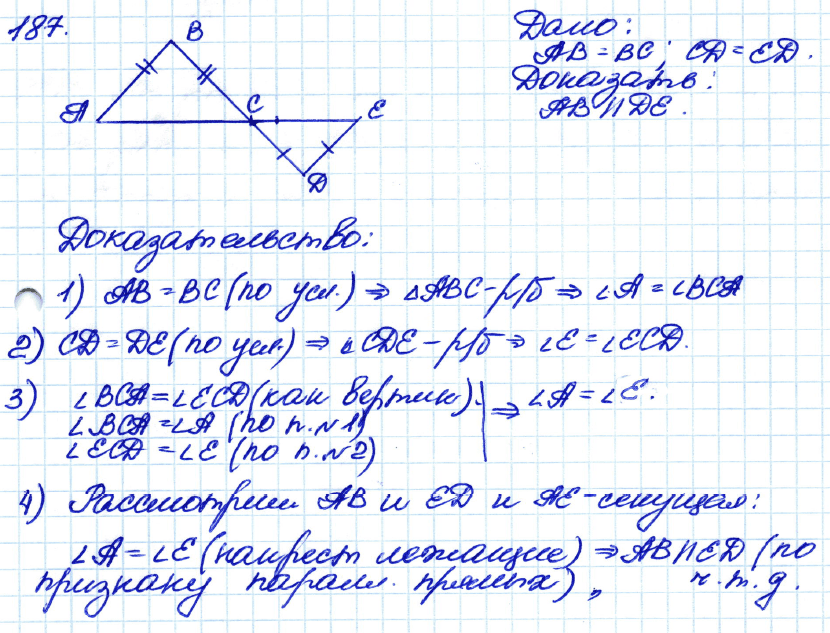 187.
B
A
C
E
D
Дано:
AB = BC; CD = ED.
Доказать:
AB || DE.
Доказательство:
1) AB = BC (по усл.) ⇒ △ABC - р/б ⇒ ∠A = ∠BCA
2) CD = DE (по усл.) ⇒ △CDE - р/б ⇒ ∠E = ∠ECD.
3) ∠BCA = ∠ECD (как вертик.).
∠BCA = ∠A (по п. №1)
∠ECD = ∠E (по п. №2)
⇒ ∠A = ∠E.
4) Рассмотрим AB и ED и AE - секущая:
∠A = ∠E (накрест лежащие) ⇒ AB || ED (по
признаку паралл. прямых), ч.т.д.